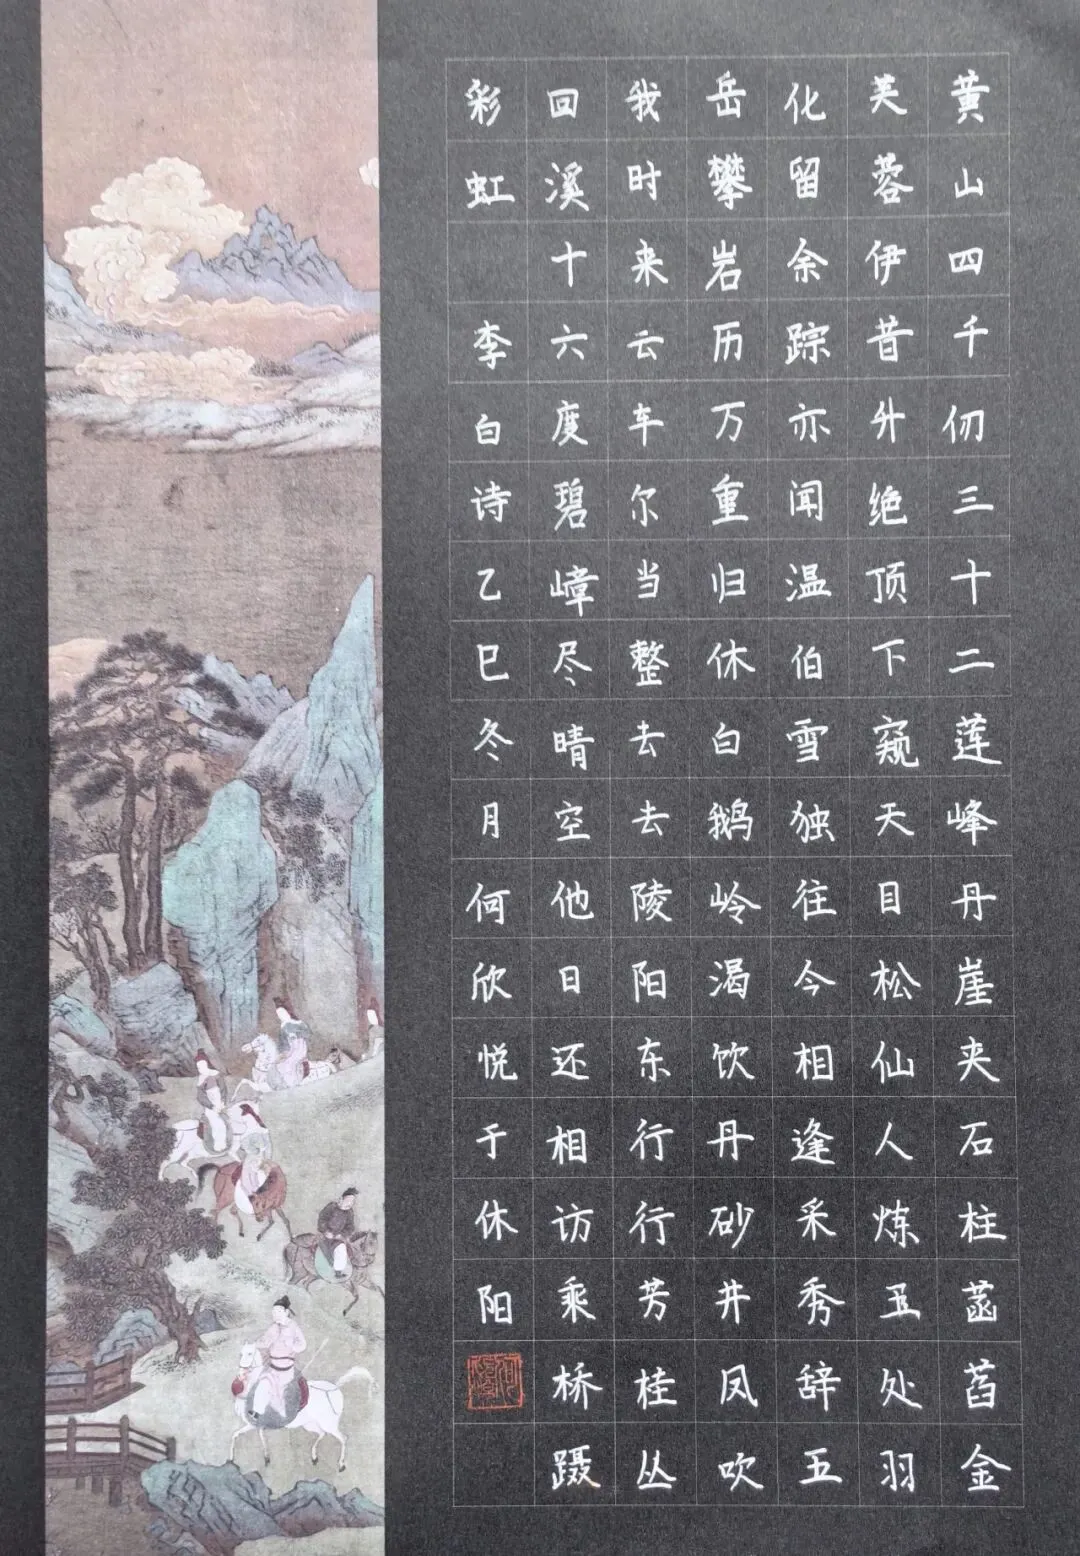 黄山四千仞三十二莲峰丹崖夹石柱菡萏金
芙蓉伊昔升绝顶下窥天目松仙人炼玉处羽
化留余踪亦闻温伯雪独往今相逢采秀辞五
岳攀岩历万重归休白鹅岭渴饮丹砂井凤吹
我时来云车尔当整去去陵阳东行行芳桂丛
回溪十六度碧嶂尽晴空他日还相访乘桥蹑
彩虹 李白诗乙巳冬月何欣悦于休阳